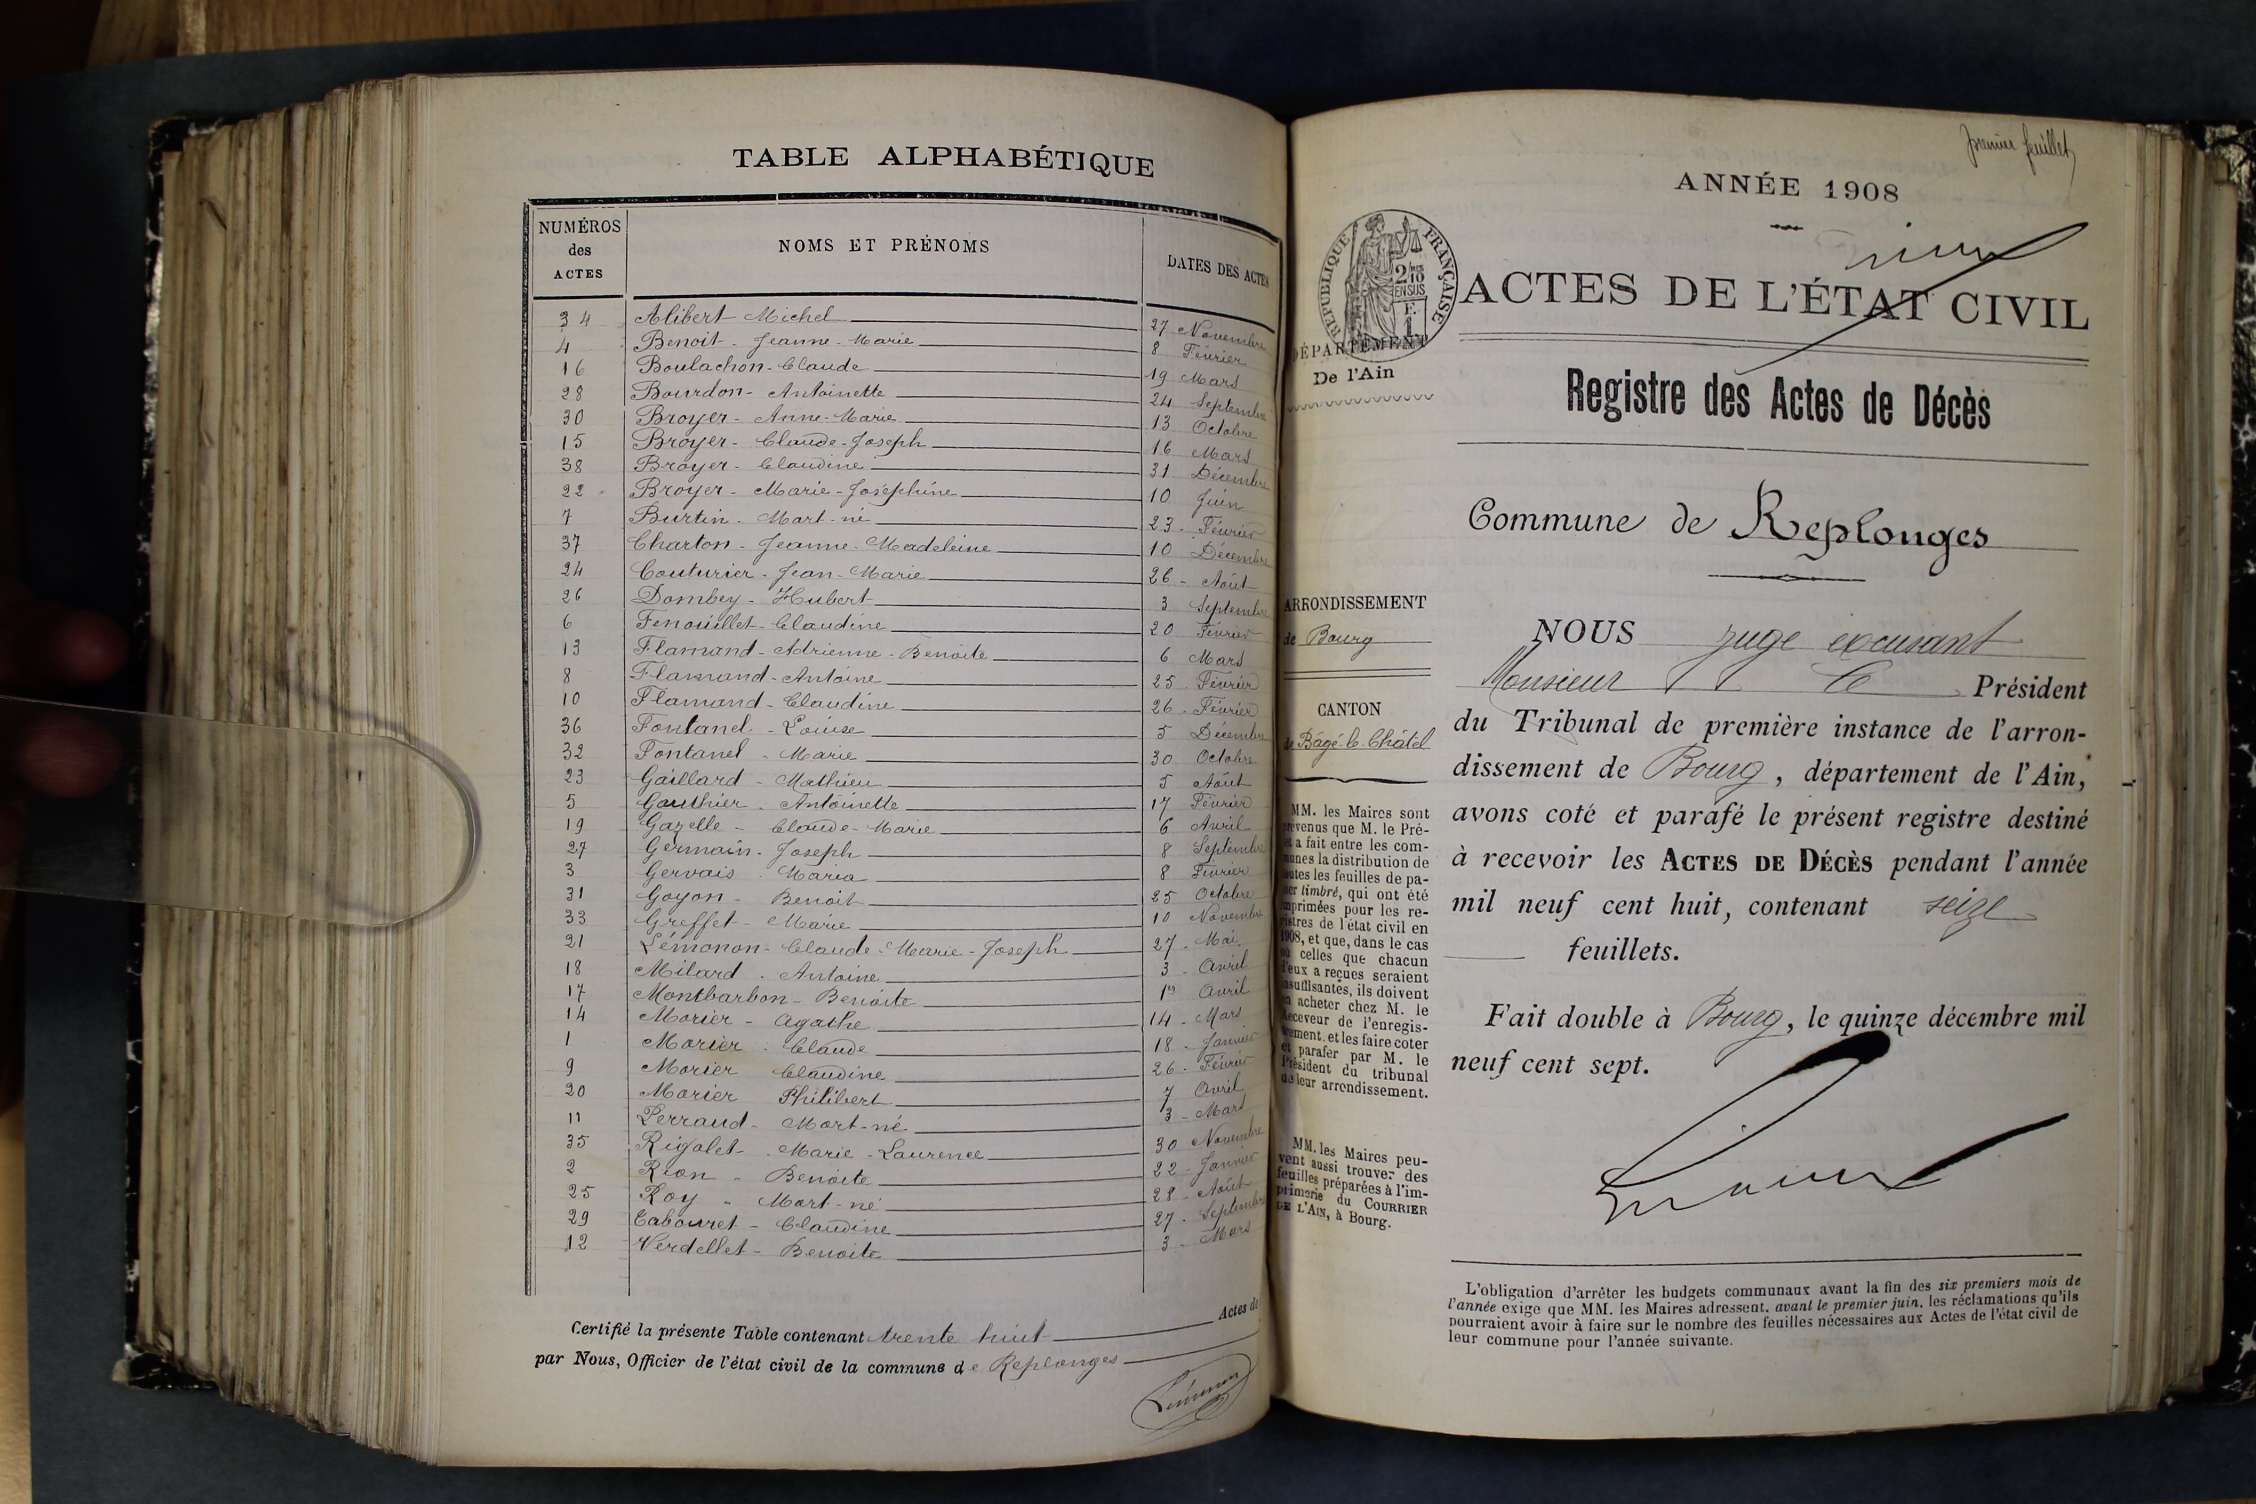 TABLE ALPHABÉTIQUE
NUMÉROS des ACTES NOMS ET PRÉNOMS DATES DES ACTES
34 Alibert Michel 27 Novembre
4 Benoit - Jeanne - Marie 8 Février
16 Boulachon - Claude 19 Mars
28 Bourdon - Antoinette 24 Septembre
30 Broyer - Anne - Marie 13 Octobre
15 Broyer - Claude - Joseph 16 Mars
38 Broyer - Claudine 31 Décembre
22 Broyer - Marie - Joséphine 10 Juin
7 Burtin - Mort-né 23 - Février
37 Charton - Jeanne - Madeleine 10 Décembre
24 Couturier - Jean - Marie 26 - Août
26 Dombey - Hubert 3 Septembre
6 Fenouillet - Claudine 20 Février
13 Flamand - Adrienne - Benoite 6 Mars
8 Flamand - Antoine 25 - Février
10 Flamand - Claudine 26 - Février
36 Fontanel - Louise 5 Décembre
32 Fontanel - Marie 30 Octobre
23 Gaillard - Mathieu 5 Août
5 Gauthier - Antoinette 17 Février
19 Gazelle - Claude - Marie 6 Avril
27 Germain - Joseph 8 Septembre
3 Gervais - Maria 8 Février
31 Goyon - Benoit 25 Octobre
33 Greffet - Marie 10 Novembre
21 Lémonon - Claude - Marie - Joseph 27 - Mai
18 Milard - Antoine 3 - Avril
17 Montbarbon - Benoite 1er Avril
14 Morier - Agathe 14 - Mars
1 Morier - Claude 18 - Janvier
9 Morier Claudine 26 - Février
20 Morier Philibert 7 Avril
11 Perraud - Mort-né 3 - Mars
35 Rigolet - Marie - Laurence 30 Novembre
2 Rion - Benoite 22 - Janvier
25 Roy - Mort-né 28 - Août
29 Tabouret - Claudine 27 - Septembre
12 Verdellet - Benoite 3 - Mars
Certifié la présente Table contenant trente huit Actes de
par Nous, Officier de l'état civil de la commune de Replonges
Lémonon
premier feuillet
ANNÉE 1908
RÉPUBLIQUE FRANÇAISE
2/10 EN SUS
F. 1
ACTES DE L'ÉTAT CIVIL
DÉPARTEMENT
De l'Ain
Registre des Actes de Décès
Commune de Replonges
ARRONDISSEMENT
de Bourg
CANTON
de Bâgé-le-Châtel
MM. les Maires sont
prévenus que M. le Pré-
et a fait entre les com-
munes la distribution de
toutes les feuilles de pa-
pier timbré, qui ont été
imprimées pour les re-
gistres de l'état civil en
1908, et que, dans le cas
où celles que chacun
d'eux a reçues seraient
insuffisantes, ils doivent
en acheter chez M. le
Receveur de l'enregis-
trement, et les faire coter
et parafer par M. le
Président du tribunal
de leur arrondissement.
MM. les Maires peu-
vent aussi trouver des
feuilles préparées à l'im-
primerie du COURRIER
DE L'AIN, à Bourg.
NOUS juge excusant
Monsieur le Président
du Tribunal de première instance de l'arron-
dissement de Bourg, département de l'Ain,
avons coté et parafé le présent registre destiné
à recevoir les ACTES DE DÉCÈS pendant l'année
mil neuf cent huit, contenant seize
feuillets.
Fait double à Bourg, le quinze décembre mil
neuf cent sept.
L'obligation d'arrêter les budgets communaux avant la fin des six premiers mois de
l'année exige que MM. les Maires adressent, avant le premier juin, les réclamations qu'ils
pourraient avoir à faire sur le nombre des feuilles nécessaires aux Actes de l'état civil de
leur commune pour l'année suivante.